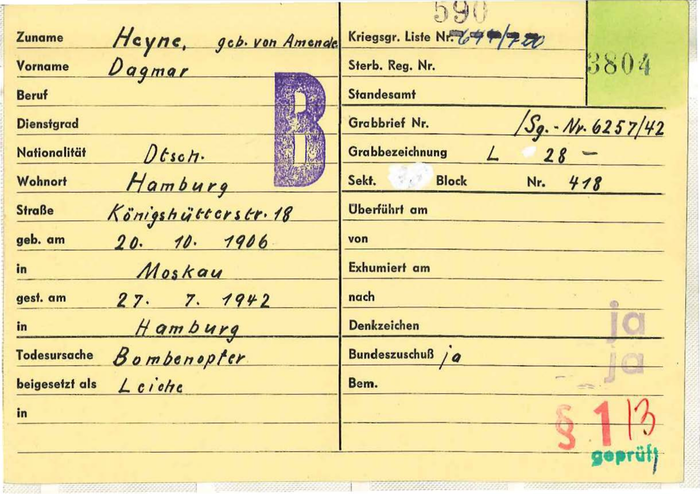 590
Zuname Heyne, geb. von Amende
Vorname Dagmar
Beruf
Dienstgrad
Nationalität Dtsch.
Wohnort Hamburg
Straße Königshütterstr. 18
geb. am 20. 10. 1906
in Moskau
gest. am 27. 7. 1942
in Hamburg
Todesursache Bombenopfer
beigesetzt als Leiche
in
B
Kriegsgr. Liste Nr.
Sterb. Reg. Nr.
3804
Standesamt
Grabbrief Nr. /Sg.-Nr. 6257/42
Grabbezeichnung L 28 –
Sekt. Block Nr. 418
Überführt am
von
Exhumiert am
nach
Denkzeichen ja
Bundeszuschuß ja ja
Bem.
§ 1/3
geprüft